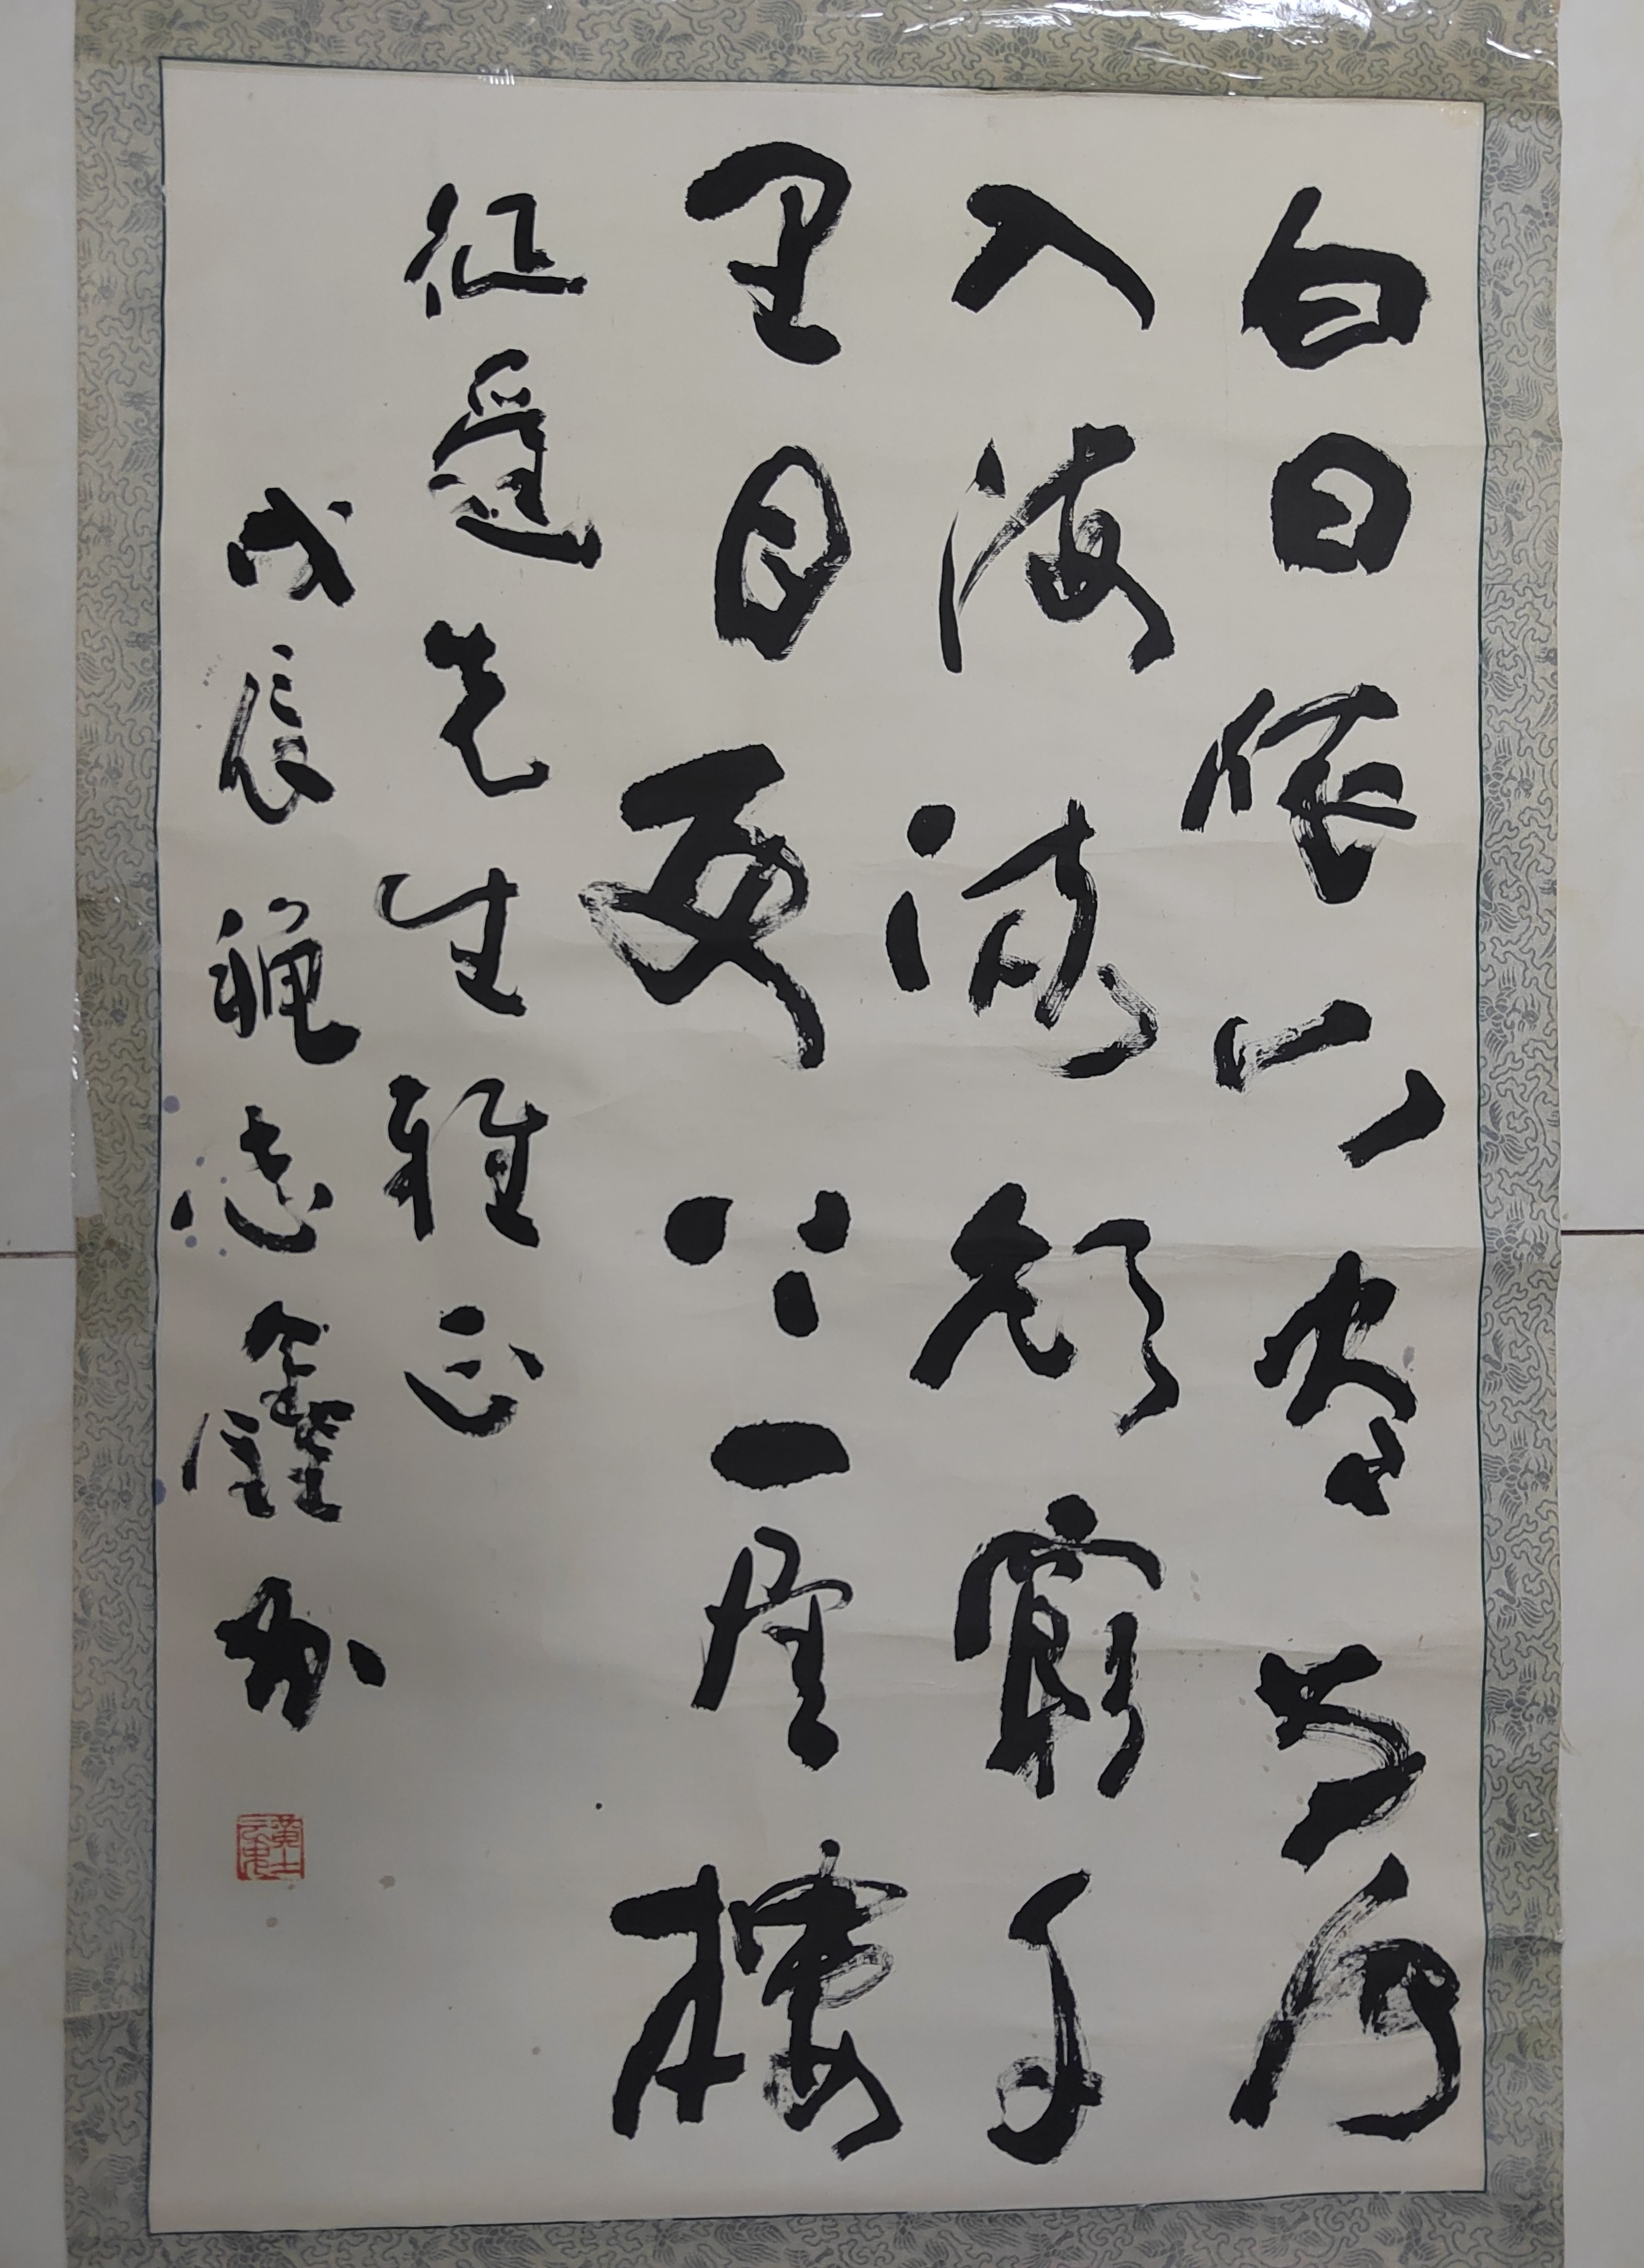 白日依山尽黄河
入海流欲窮千
里目更上一层樓
征遥先生雅正
戊辰穐志鑫书